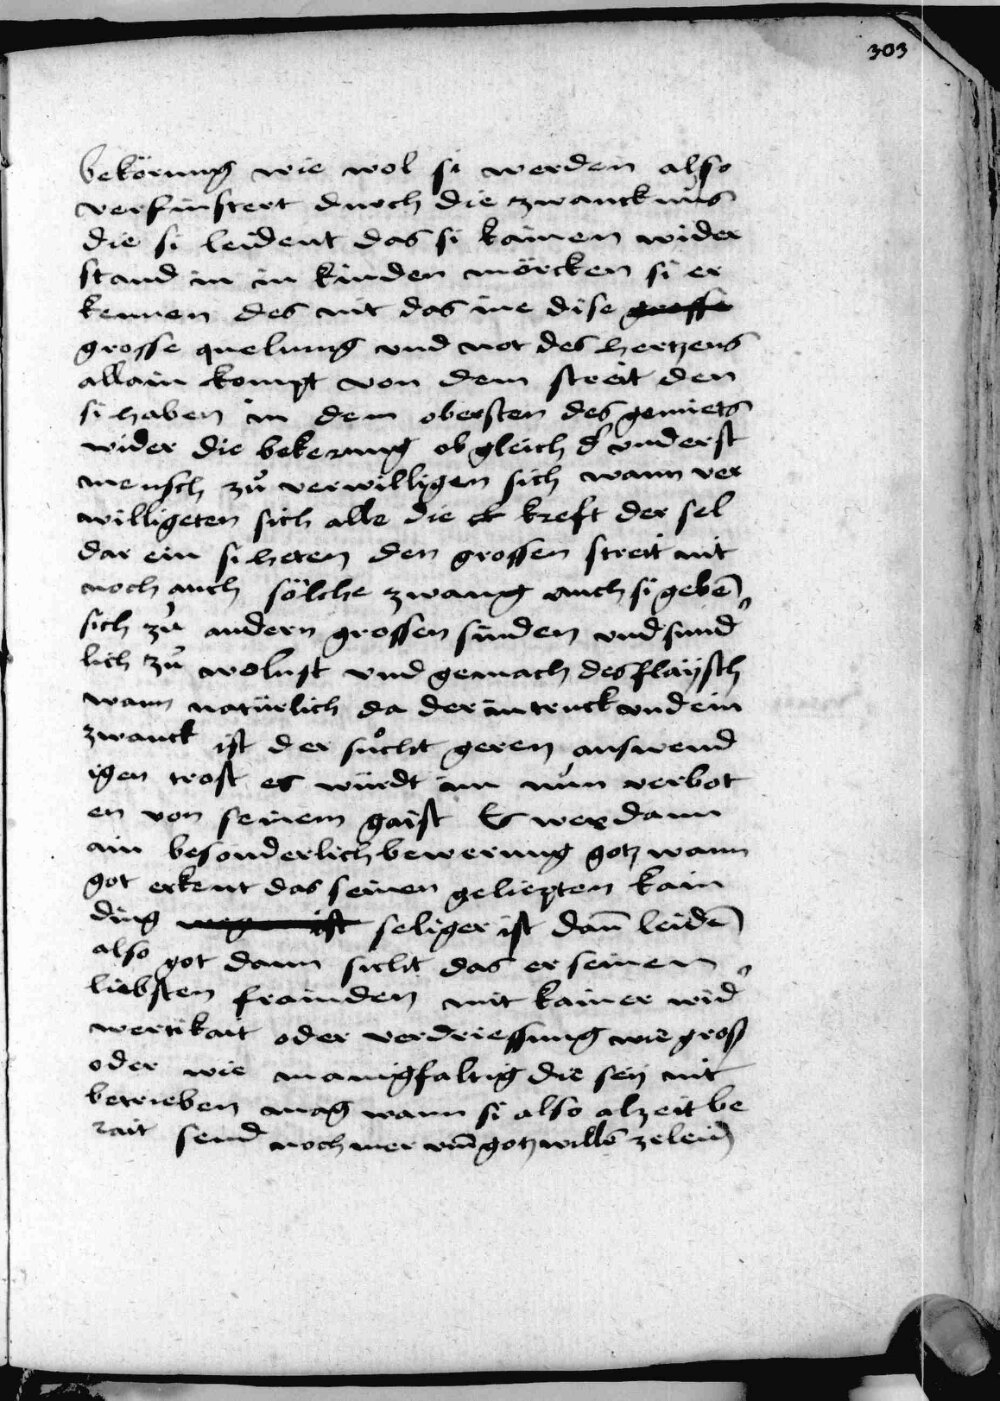 303
bekörung wie wol si werden also
verfinstert durch die zwancknus
die si leident das si kainen wider
stand in in kinden mörcken si er
kennen des nit das ine dise grosse
grosse quelung vnd not des hertzens
allain kompt von dem streit den
si haben in dem obersten des gemiets
wider die bekerung ob gleich d' vnderst
mensch zů verwilligen sich wann ver
willigeten sich alle die kreft der sel
dar ein si heten den grossen streit nit
noch auch sölche zwang auch si gebē
sich zů andern grossen sünden vnd sund'
lich zů wolust vnd gemach des flaÿsch
wann natürlich da der in truck vnd ein
zwanck ist der sůcht geren auswend
igen trost es würdt im nun verbot
en von seinem gaist Es wer dann
ain besonderlich bewerung gotz wann
got erkent das seinen geliepten kain
ding seliger ist dañ leidē
also got dann sicht das er seinen
liebsten frainden mit kainer wid'
wertikait oder verdriessung wie groß
oder wie manigfaltig die seÿ nit
betrieben mag wann si also alzeit be
rait send noch mer vm̄ gotz willē zeleid